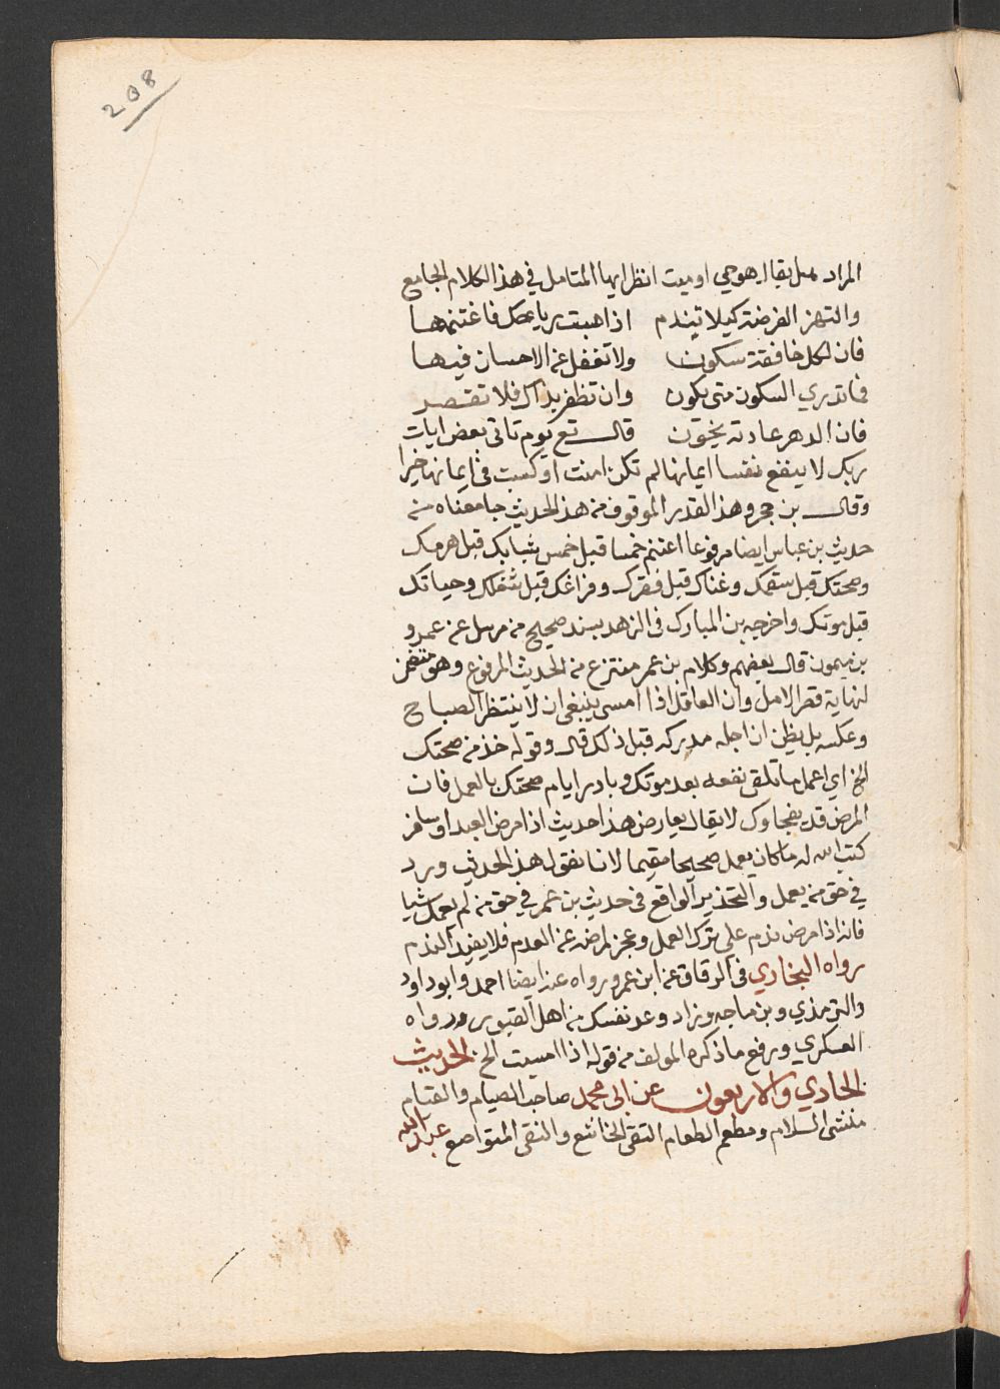 208
المراد هل يقال هو حي او ميت انظر ايها المتامل في هذا الكلام الجامع
وانتهز الفرضة كيلا تيندم اذا هبت رياحك فاغتنمها
فان لكل خافقة سكون ولا تغفل عن الاحسان فيها
فما تدري السكون متى يكون وان تظفر بذاك فلا تقصر
فان الدهر عادته يخون قال تع يوم تاتي بعض ايات
ربك لا ينفع نفسا ايمانها لم تكن امنت او كسبت في ايمانها خيرا
وقال بن حجر وهذا القدر الموقوف من هذ الحديث جا معناه من
حديث بن عباس ايضا مرفوعا اغتنم خمسا قبل خمس شبابك قبل هرمك
وصحتك قبل سقمك وغناك قبل فقرك وفراغك قبل شغلك وحياتك
قبل موتك واخرجه بن المبارك في الزهد بسند صحيح من مرسل عن عمرو
بن ميمون قال بعضهم وكلام بن عمر منتزع من الحديث المرفوع وهو متضمن
لنهاية قصر الامل وان العاقل اذا امسى ينبغي ان لا ينتظر الصباح
وعكسه بل يظن ان اجله مدركه قبل ذلك قال وقوله خذ من صحتك
الخ اي اعمل ما تلقى نفعه بعد موتك وبادر ايام صحتك بالعمل فان
المرض قد يفجاوك لا يقال يعارض هذا حديث اذا مرض العبد او سافر
كتب الله له ما كان يعمل صحيحا مقيما لانا نقول هذا الحديث ورد
في حق من يعمل والتحذير الواقع في حديث بن عمر في حق من لم يعمل شيا
فانه اذا مرض ندم على ترك العمل وعجز لمرضه عن العدم فلا يفيد الندم
رواه البخاري في الرقاق عن ابن عمر ورواه عنه ايضا احمد وابوداود
والترمذي وبن ماجه وزاد وعد نفسك من اهل القبور ورواه
العسكري ورفع ما ذكره المولف من قوله اذا امسيت الخ الحديث
الحادي والاربعون عن ابي محمد صاحب الصيام والقيام
منشى السلام ومطعم الطعام التقي الخاشع والنقي المتواضع عبد الله